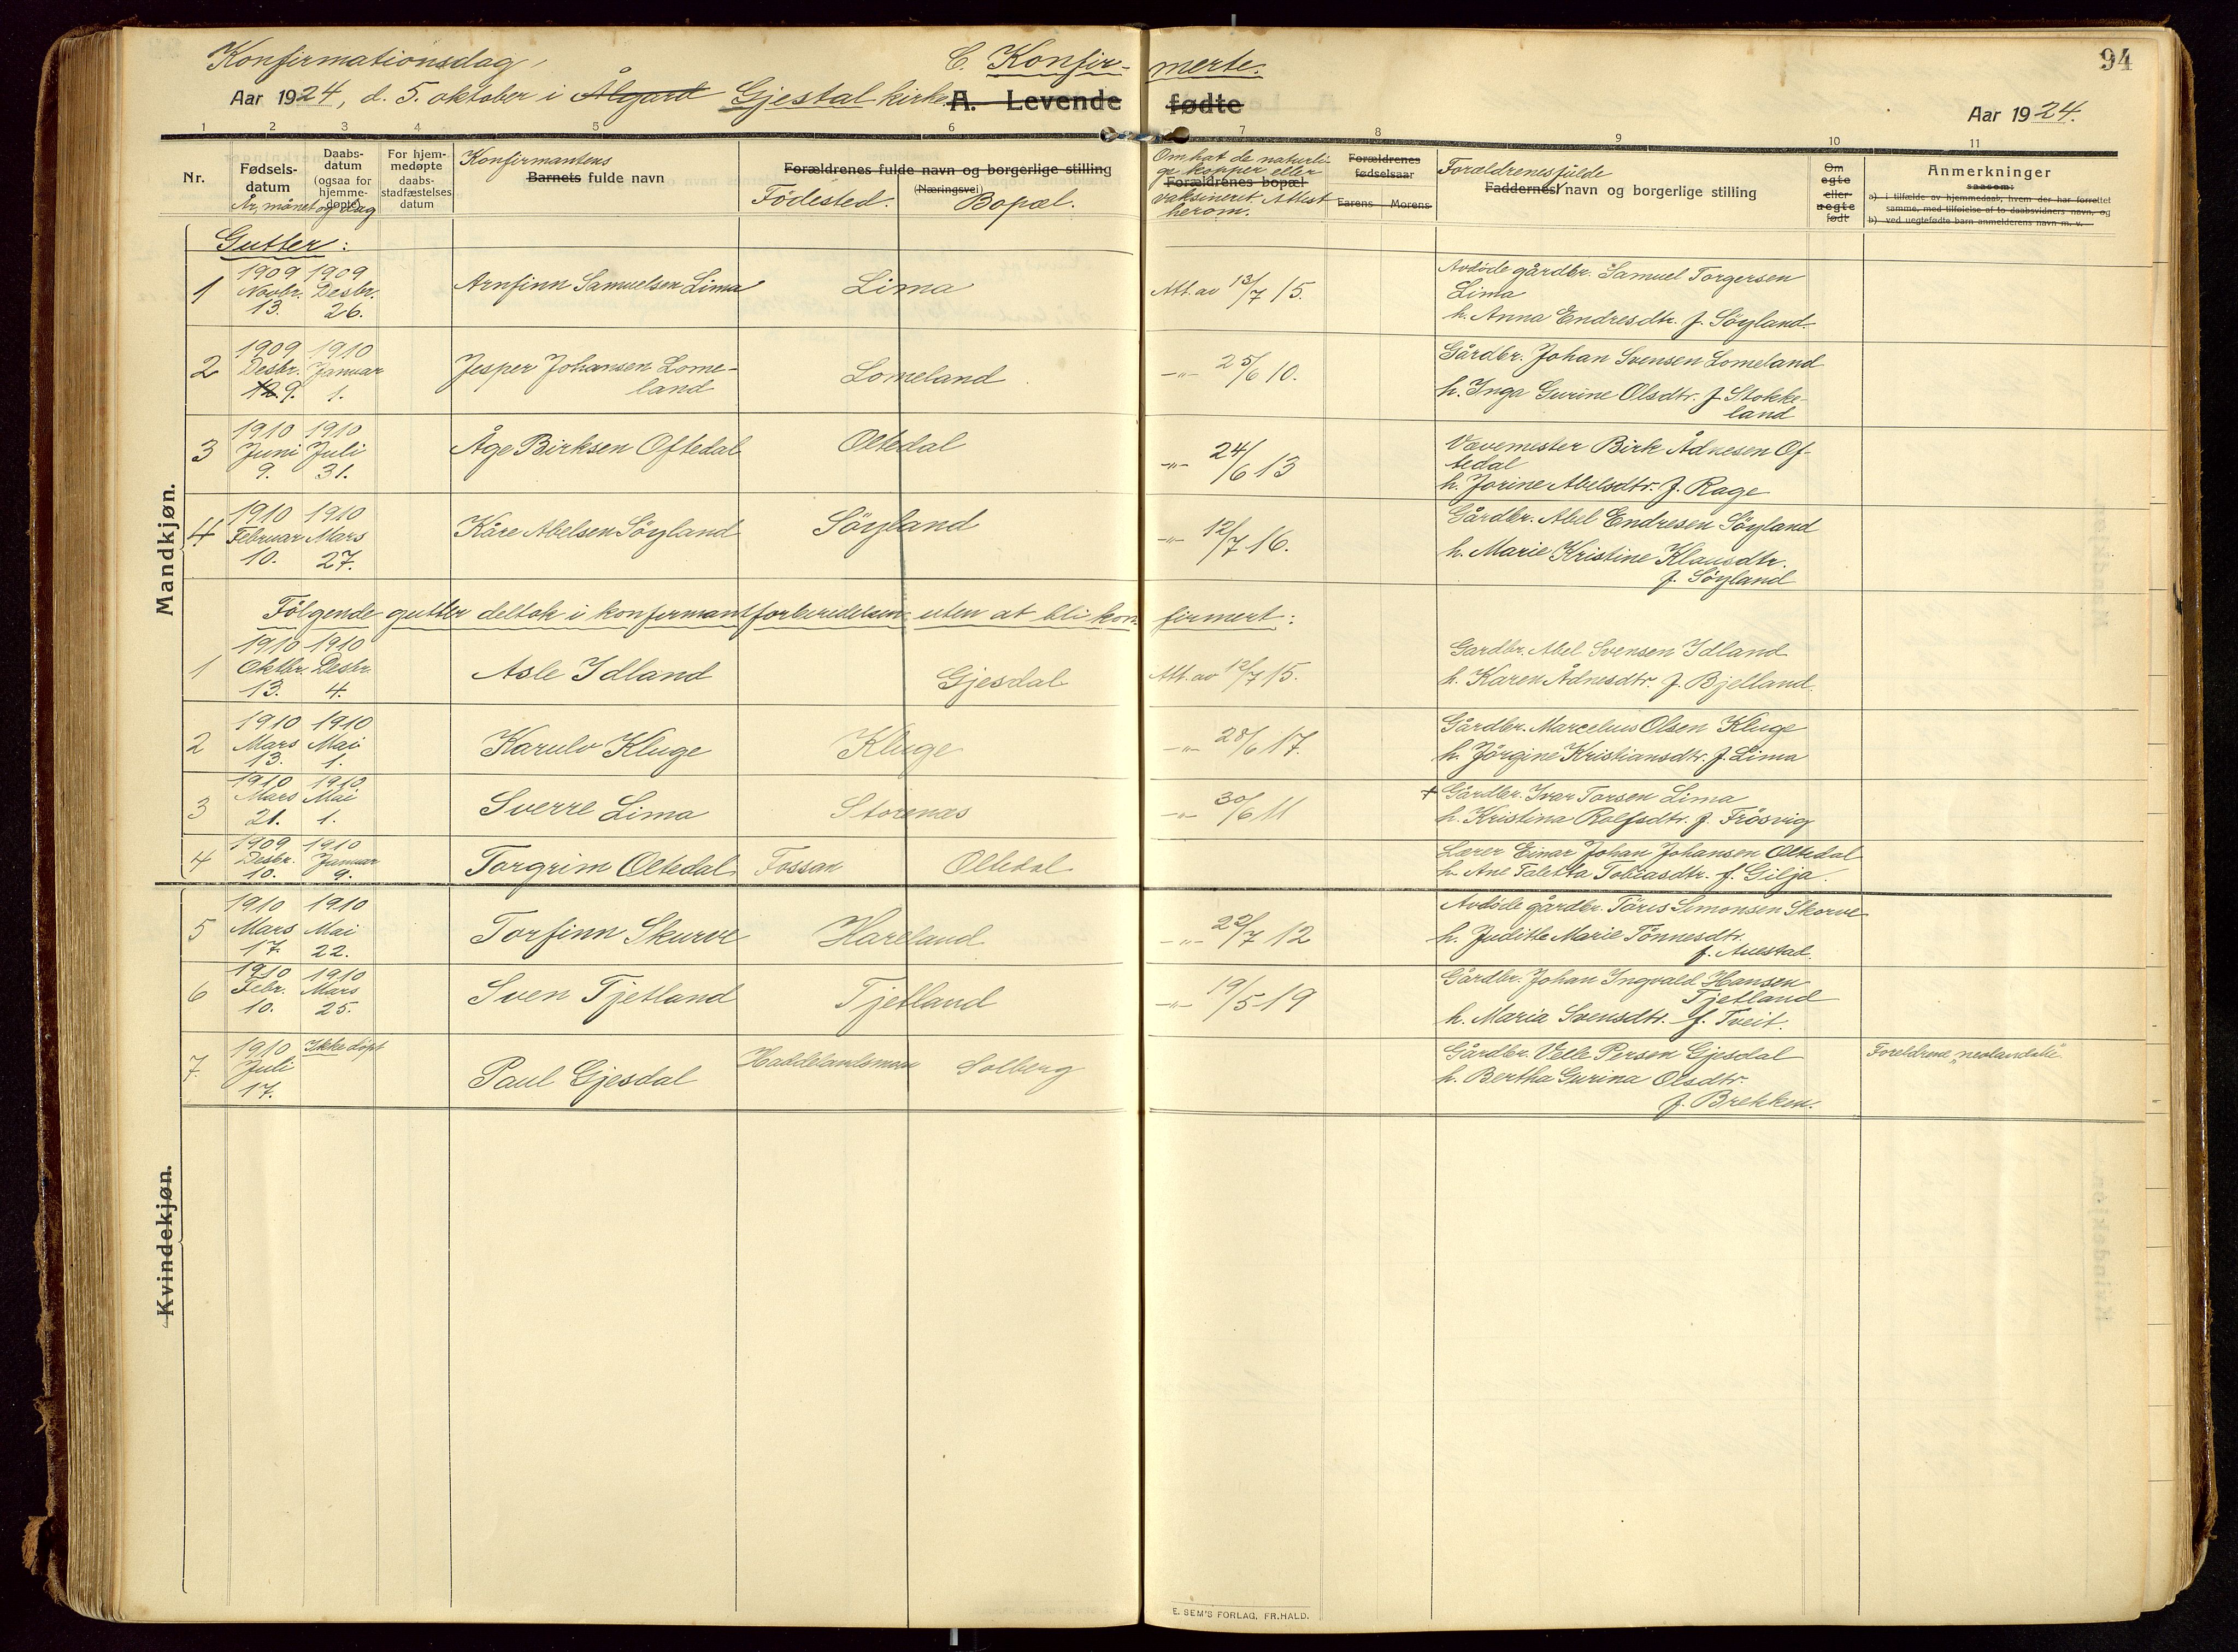 Konfirmationsdag
C. Konfir- merte.
94
Aar 1924, d. 5. oktober i Ålgård Gjestal kirke A. Levende fødte
Aar 1924.
1 2 3 4 5 6 7 8 9 10 11
Nr.
Fødsels-
datum
År, månet og dag
Daabs-
datum
(ogsaa for
hjemme-
døpte)
For hjem-
medøpte
daabs-
stadfæstelses
datum
Konfirmantens
Barnets fulde navn
Forældrenes fulde navn og borgerlige stilling
(Næringsvei)
Födested. Bopæl.
Om hat de naturli-
ge kopper eller
Forældrenes bopæl
vaksineret. Attest
herom.
Forældrenes
fødselsaar
Farens Morens
Forældrenes fulde
Faddernes navn og borgerlige stilling
Om
egte
eller
uegte
født
Anmerkninger
saasom:
a) i tilfælde av hjemmedaab, hvem der har forrettet
samme, med tilføielse af to daabsvidners navn, og
b) ved uegtefødte barn anmelderens navn m. v.
Mandkjøn.
Gutter:
1 1909 Novbr. 13. 1909 Desbr. 26. Arnfinn Samuelsen Lima Lima Att. av 13/7 15. Avdöde gårdbr. Samuel Torgersen
Lima
h. Anna Endresdtr. f. Söyland
2 1909 Desbr. 12 9. 1910 Januar 1. Jesper Johansen Lome-
land Lomeland -"- 25/6 10. Gårdbr. Johan Svensen Lomeland
h. Inga Gurine Olsdtr. f. Stokke-
land
3 1910 Juni 9. 1910 Juli 31. Åge Birksen Oftedal Oltedal -"- 24/6 13 Vævemester Birk Ådnesen Of-
tedal
h. Jorine Abelsdtr. f. Rage
4 1910 Februar 10. 1910 Mars 27. Kåre Abelsen Söyland Söyland -"- 12/7 16. Gårdbr. Abel Endresen Söyland
h. Marie Kristine Klausdtr.
f. Söyland
Fölgende gutter deltok i konfirmantforberedelsen uten at bli kon- firmert:
1 1910 Oktbr. 13. 1910 Desbr. 4. Asle Idland Gjesdal Att. av 12/7 15. Gardbr. Abel Svensen Idland
h. Karen Ådnesdtr. f. Bjelland.
2 1910 Mars 13. 1910 Mai 1. Karulv Kluge Kluge -"- 28/6 17. Gårdbr. Marcelius Olsen Kluge
h. Jörgine Kristiansdtr. f. Lima
3 1910 Mars 21. 1910 Mai 1. Sverre Lima Storenæs -"- 30/6 11 + Gårdbr. Ivar Torsen Lima
h. Kristina Rolfsdtr. f. Frösvig
4 1909 Desbr. 10. 1910 Januar 9. Torgrim Oltedal Fossan Oltedal Lærer Einar Johan Johansen Oltedal
h. Ane Taletta Tobiasdtr. f. Gilja.
5 1910 Mars 17. 1910 Mai 22. Torfinn Skurve Hareland -"- 22/7 12 Avdöde gårdbr. Töres Simonsen Skorve
h. Judithe Marie Tönnesdtr.
f. Auestad.
6 1910 Febr. 10. 1910 Mars 25. Sven Tjetland Tjetland -"- 19/5 19 Gårdbr. Johan Ingvald Hansen
Tjetland
h. Maria Svensdtr. f. Tveit.
7 1910 Juli 17. Ikke döpt Paul Gjesdal Haddelandsmoen Solberg Gårdbr. Velle Persen Gjesdal
h. Bertha Gurina Olsdtr.
f. Brekken. Foreldrene
Kvindekjøn.
E. SEM'S FORLAG, FR.HALD.